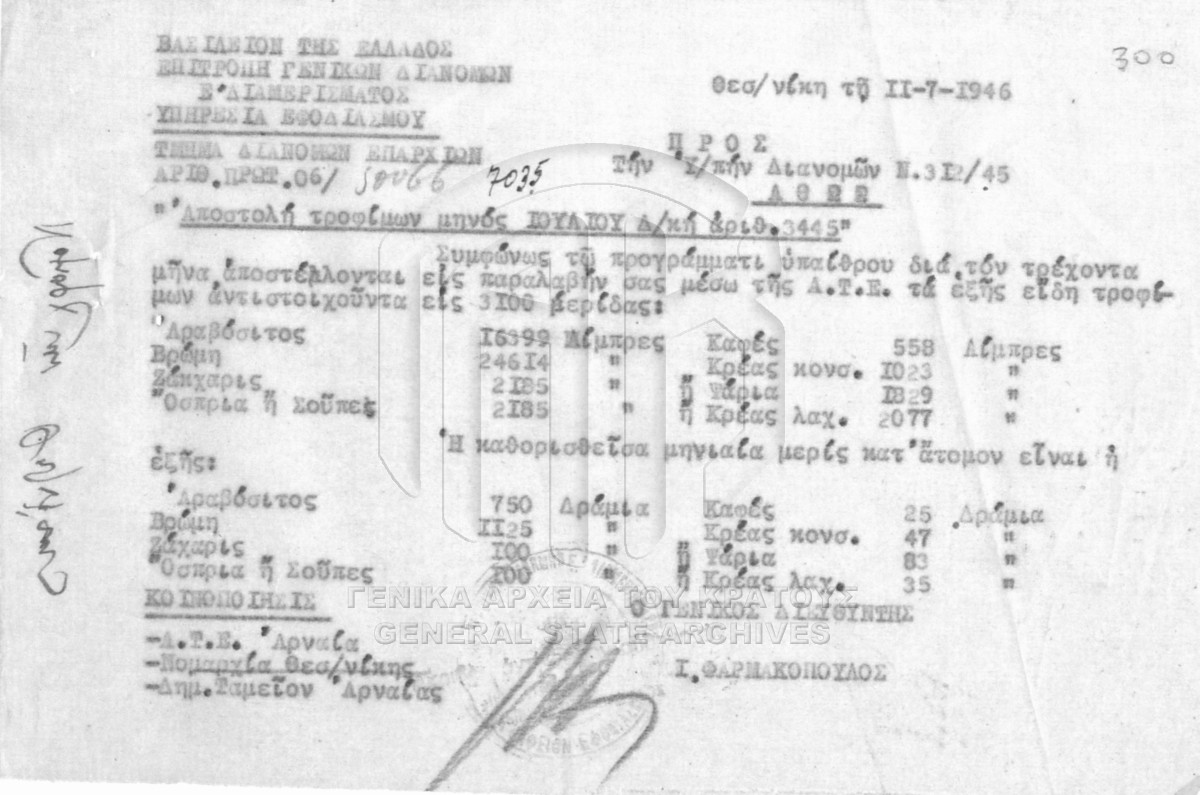 300
ΒΑΣΙΛΕΙΟΝ ΤΗΣ ΕΛΛΑΔΟΣ
ΕΠΙΤΡΟΠΗ ΓΕΝΙΚΩΝ ΔΙΑΝΟΜΩΝ
Ε'ΔΙΑΜΕΡΙΣΜΑΤΟΣ
ΥΠΗΡΕΣΙΑ ΕΦΟΔΙΑΣΜΟΥ
ΤΜΗΜΑ ΔΙΑΝΟΜΩΝ ΕΠΑΡΧΙΩΝ
ΑΡΙΘ.ΠΡΩΤ.06/ 7035
Θεσ/νίκη τῇ II-7-I946
Π Ρ Ο Σ
Τήν Ὑ/πήν Διανομῶν Ν.3I2/45
Α Θ Ω Ω
"Ἀποστολή τροφίμων μηνός ΙΟΥΛΙΟΥ Δ/κή ἀριθ.3445"
Συμφώνως τῷ προγράμματι ὑπαίθρου διά τόν τρέχοντα
μῆνα ἀποστέλλονται εἰς παραλαβήν σας μέσω τῆς Α.Τ.Ε. τά ἑξῆς εἴδη τροφί-
μων ἀντιστοιχοῦντα εἰς 3I00 μερίδας:
Ἀραβόσιτος I6399 Λίμπρες Καφές 558 Λίμπρες
Βρώμη 246I4 " Κρέας κονσ. I023 "
Ζάκχαρις 2I85 " ἤ Ψάρια I829 "
Ὄσπρια ἤ Σοῦπες 2I85 " ἤ Κρέας λαχ. 2077 "
Ἡ καθορισθεῖσα μηνιαία μερίς κατ'ἄτομον εἶναι ἡ
ἑξῆς:
Ἀραβόσιτος 750 Δράμια Καφές 25 Δράμια
Βρώμη II25 " Κρέας κονσ. 47 "
Ζάχαρις I00 " ἤ Ψάρια 83 "
Ὄσπρια ἤ Σοῦπες I00 " ἤ Κρέας λαχ. 35 "
ΚΟΙΝΟΠΟΙΗΣΙΣ
Ο ΓΕΝΙΚΟΣ ΔΙΕΥΘΥΝΤΗΣ
-Α.Τ.Ε. Ἀρναία
-Νομαρχία Θεσ/νίκης
-Δημ.Ταμεῖον Ἀρναίας
Ι.ΦΑΡΜΑΚΟΠΟΥΛΟΣ
ΓΕΝΙΚΑ ΑΡΧΕΙΑ ΤΟΥ ΚΡΑΤΟΥΣ
GENERAL STATE ARCHIVES